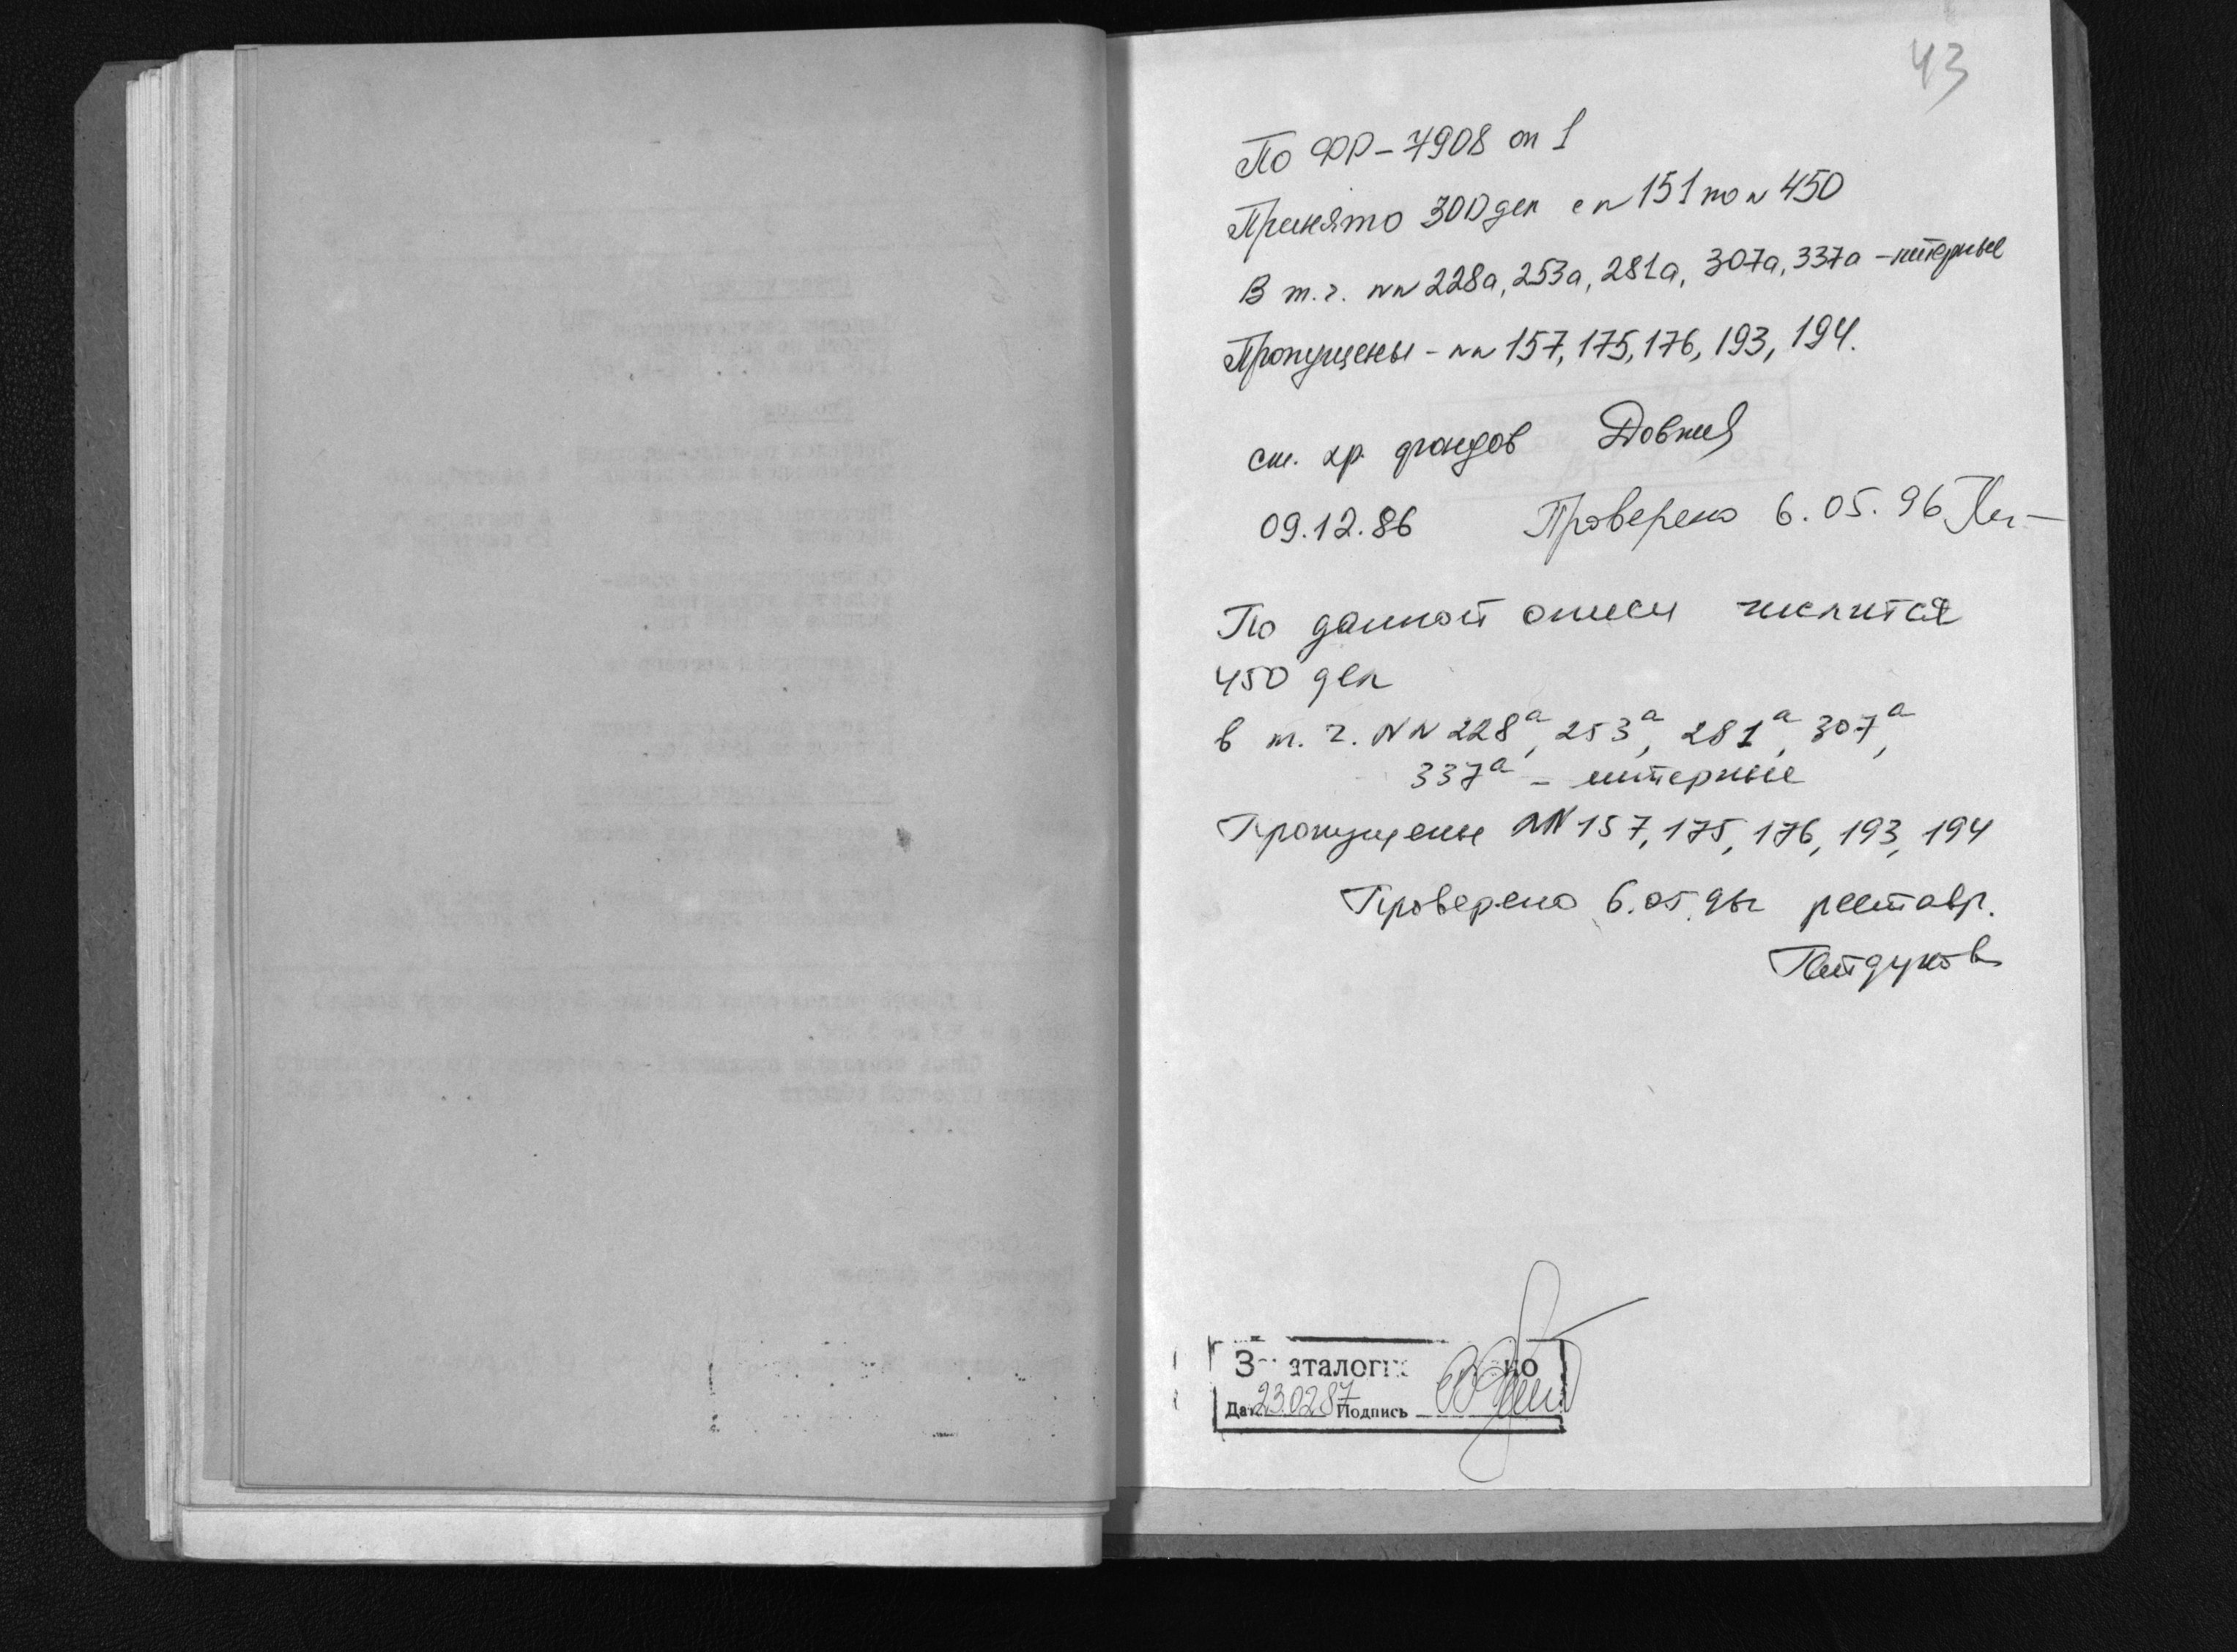 43
По ФР-7908 оп 1
Принято 300 дел с N 151 по N 450
В т.ч. NN 228а, 253а, 281а, 307а, 337а - литерные
Пропущены - NN 157, 175, 176, 193, 194.
ст. хр. фондов
09.12.86 Проверено 6.05.96
По данной описи числится
450 дел
в т.ч. NN 228а, 253а, 281а, 307а,
337а - литерные
Пропущены NN 157, 175, 176, 193, 194
Проверено 6.05.96г реставр.
Дата 23.02.87 Подпись